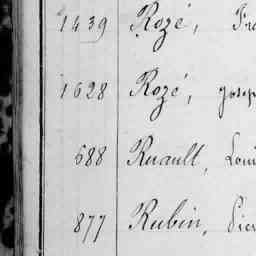 1439 Rozé, Fra
1628 Rozé, Josep
688 Ruault, Loui
877 Rubin, Pier